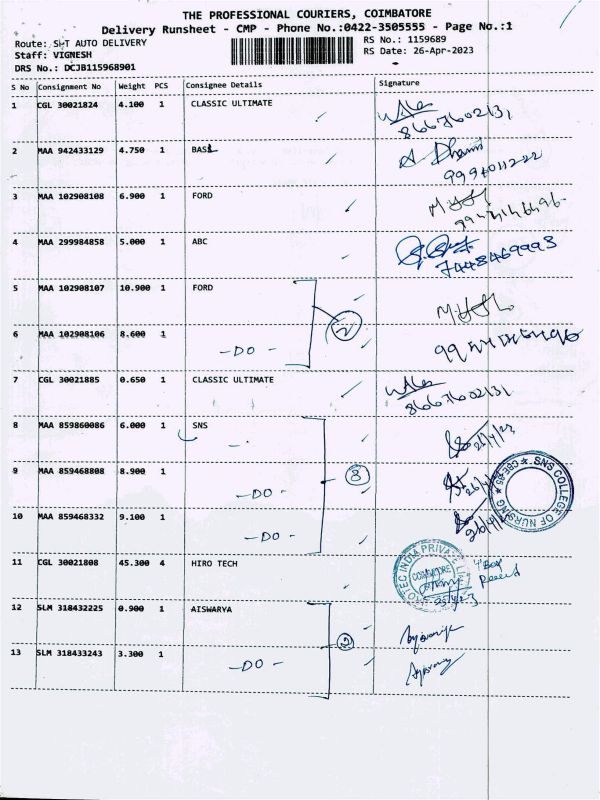 THE PROFESSIONAL COURIERS, COIMBATORE
Delivery Runsheet - CMP - Phone No.:0422-3505555 - Page No.:1
Route: SHT AUTO DELIVERY
RS No.: 1159689
Staff: VIGNESH
RS Date: 26-Apr-2023
DRS No.: DCJB115968901
S No Consignment No Weight PCS Consignee Details Signature
1 CGL 30021824 4.100 1 CLASSIC ULTIMATE
8667602131
2 MAA 942433129 4.750 1 BASL
A Dhami
3 MAA 102908108 6.900 1 FORD
4 MAA 299984858 5.000 1 ABC
7448469993
5 MAA 102908107 10.900 1 FORD
2
6 MAA 102908106 8.600 1
-DO-
7 CGL 30021885 0.650 1 CLASSIC ULTIMATE
8667602131
8 MAA 859860086 6.000 1 SNS
26/4/23
9 MAA 859468808 8.900 1
-DO-
8
SNS COLLEGE OF NURSING ★ CBE-35 ★
10 MAA 859468332 9.100 1
-DO-
11 CGL 30021808 45.300 4 HIRO TECH
COIMBATORE
4 Box
12 SLM 318432225 0.900 1 AISWARYA
2
13 SLM 318433243 3.300 1
-DO-